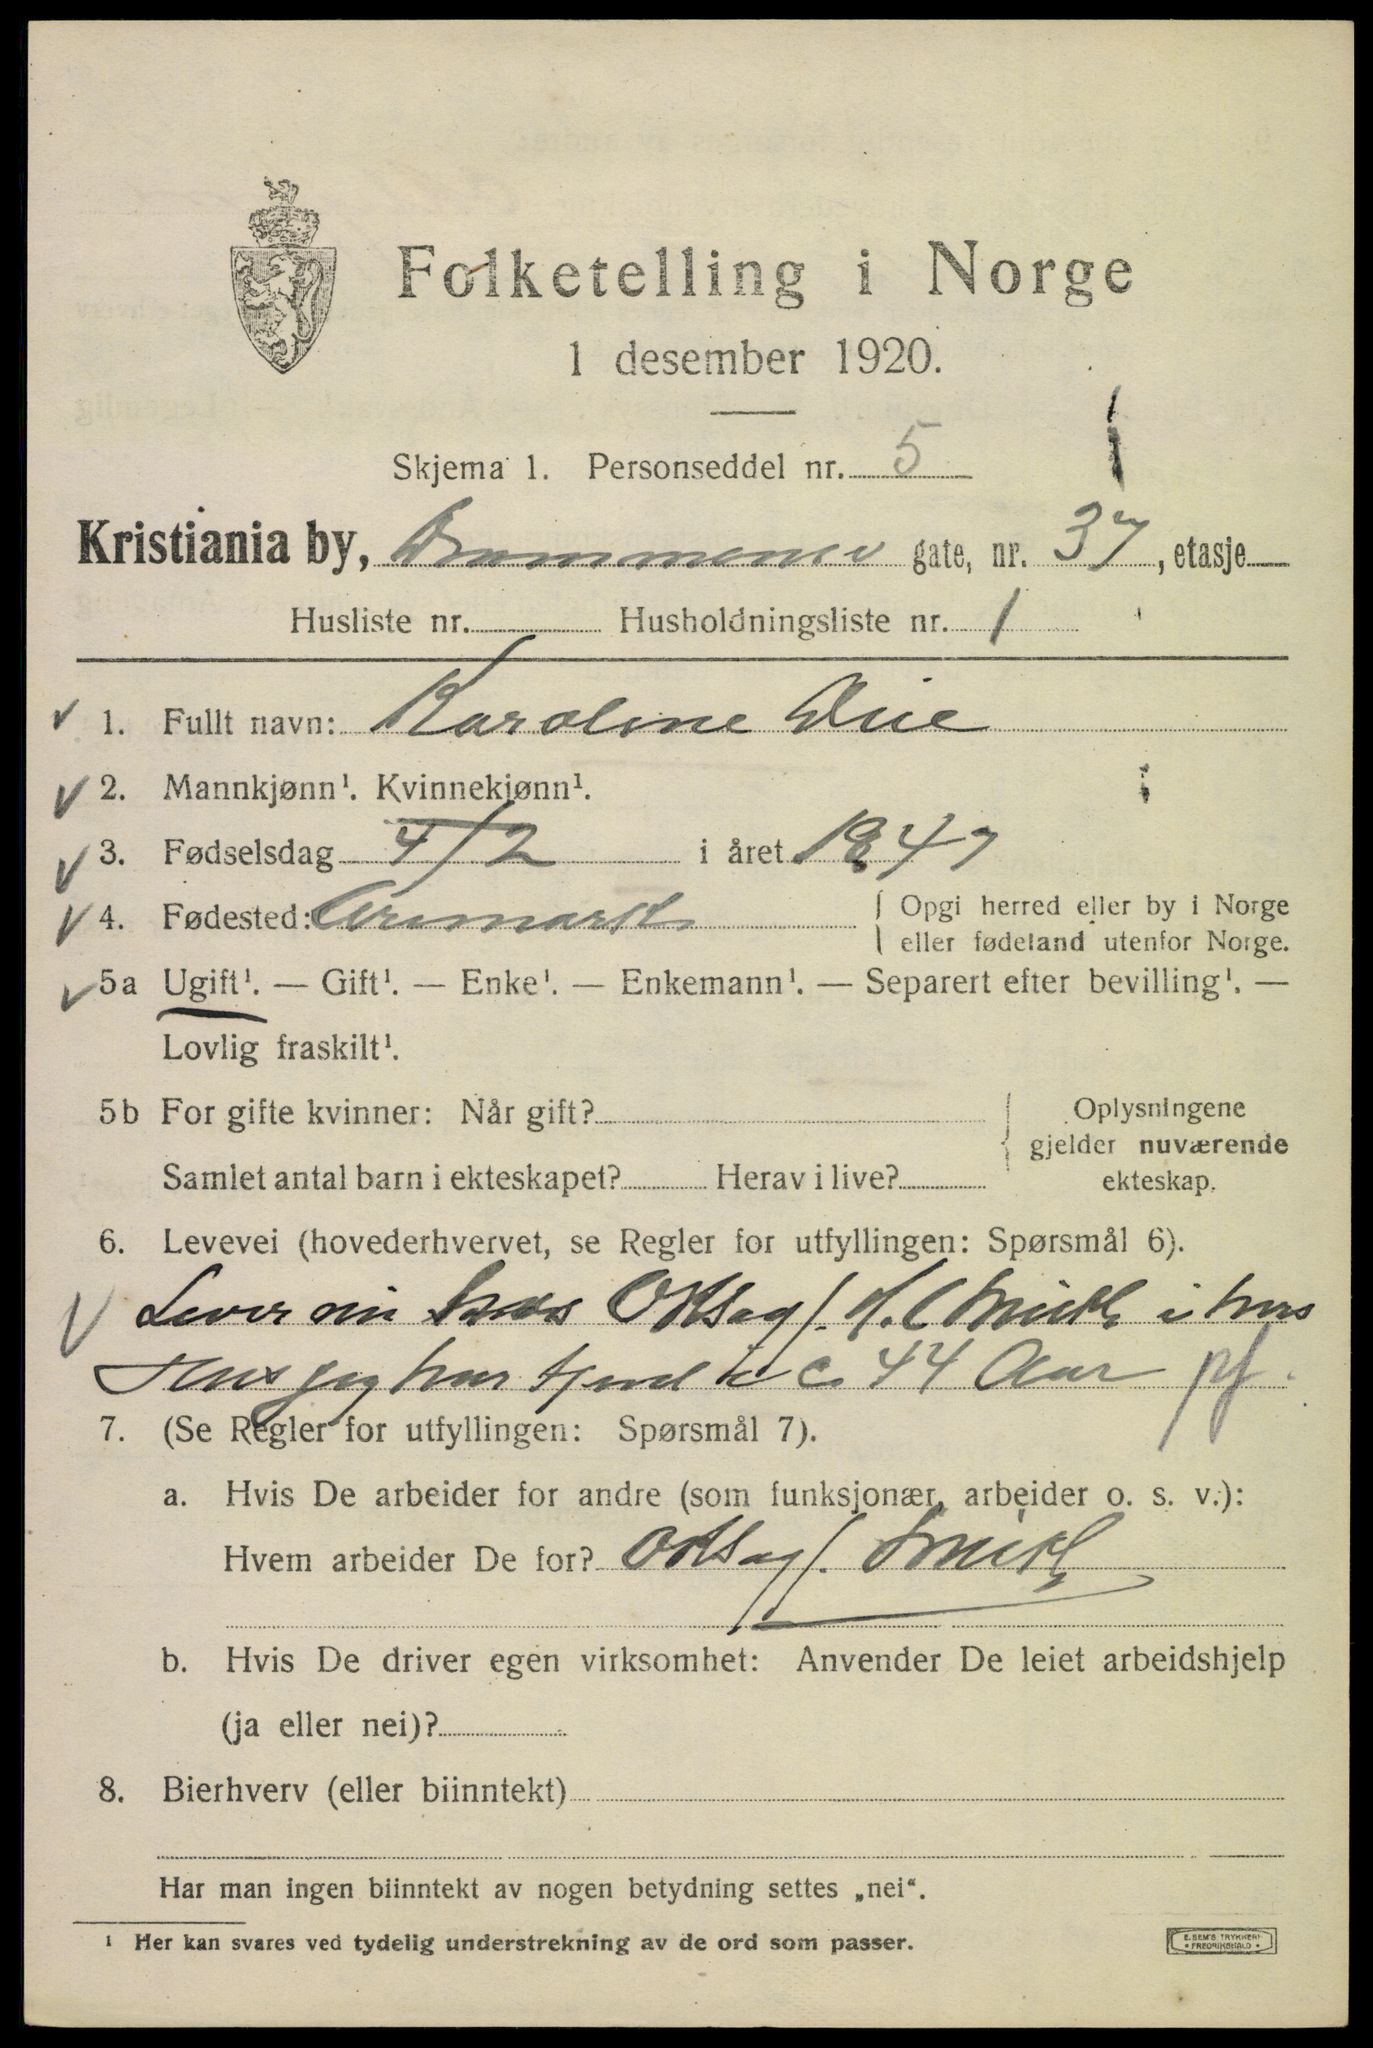 Folketelling i Norge
1 desember 1920.
Skjema 1. Personseddel nr. 5
Kristiania by, Drammensv gate, nr. 37, etasje
Husliste nr. Husholdningsliste nr. 1
1. Fullt navn: Karoline
2. Mannkjønn¹. Kvinnekjønn¹.
3. Fødselsdag 4/2 i året 1847
4. Fødested: Aremark { Opgi herred eller by i Norge
eller fødeland utenfor Norge.
5a Ugift¹. — Gift¹. — Enke¹. — Enkemann¹. — Separert efter bevilling¹. —
Lovlig fraskilt¹.
5b For gifte kvinner: Når gift? Oplysningene
gjelder nuværende
Samlet antal barn i ekteskapet? Herav i live? ekteskap.
6. Levevei (hovederhvervet, se Regler for utfyllingen: Spørsmål 6).
Lever nu hos Ovsagf. Smith i hvis
Hus jeg har tjent i c. 44 Aar pf.
7. (Se Regler for utfyllingen: Spørsmål 7).
a. Hvis De arbeider for andre (som funksjonær, arbeider o. s. v.):
Hvem arbeider De for? Smith
b. Hvis De driver egen virksomhet: Anvender De leiet arbeidshjelp
(ja eller nei)?
8. Bierhverv (eller biinntekt)
Har man ingen biinntekt av nogen betydning settes „nei“.
¹ Her kan svares ved tydelig understrekning av de ord som passer.
E. SEM'S TRYKKERI
• FREDRIKSHALD •